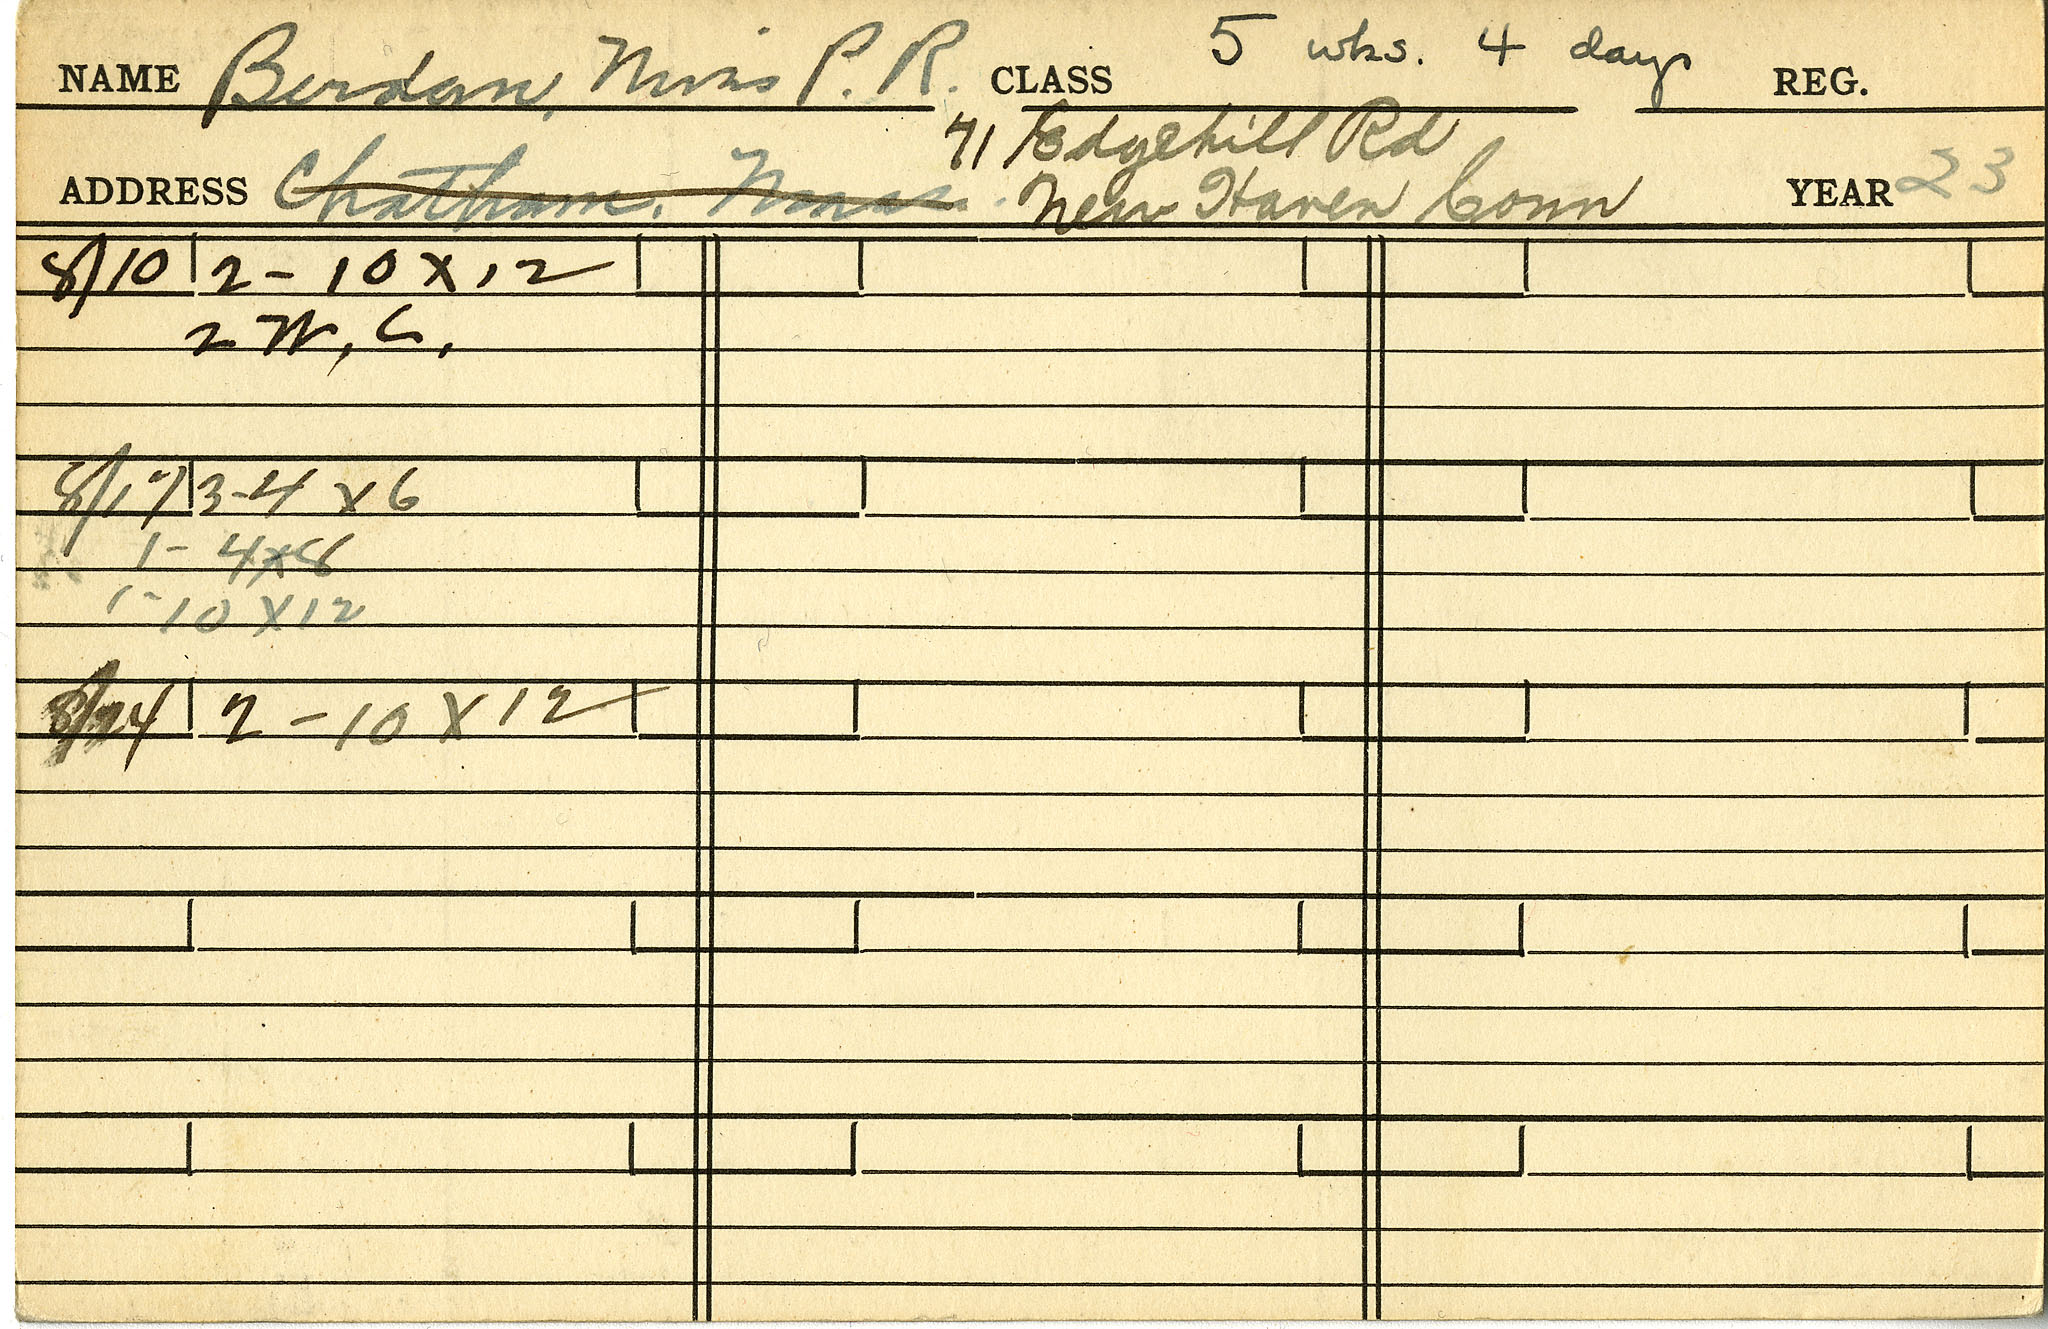 NAME Berdan, Miss P. R. CLASS 5 wks. 4 days REG.
71 Edgehill Rd
ADDRESS Chatham, Mass. New Haven Conn YEAR 23
8/10 2 - 10 X 12
2 W. C.
8/17 3 - 4 X 6
1 - 4 x 8
1 - 10 X 12
8/24 2 - 10 X 12